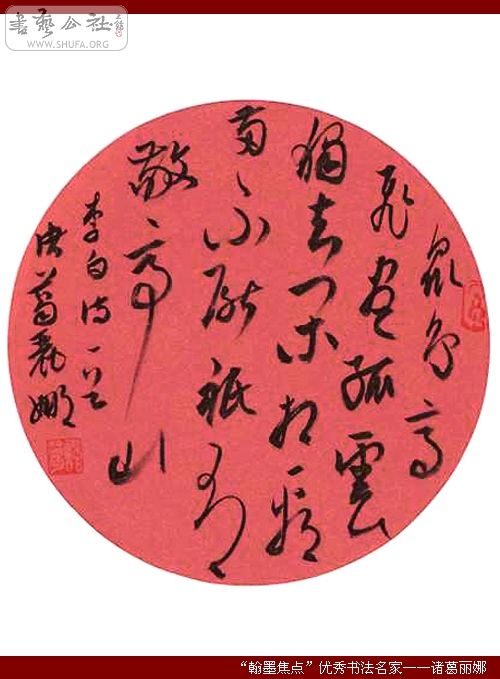 書藝公社
WWW.SHUFA.ORG
眾鳥高
飛盡孤雲
獨去閑相看
兩不厭祇有
敬亭山
李白詩一首
諸葛麗娜
“翰墨焦点”优秀书法名家——诸葛丽娜